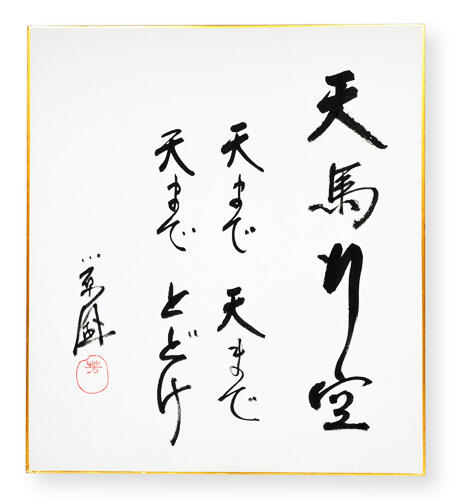 天馬行空
天まで 天まで
天まで とどけ